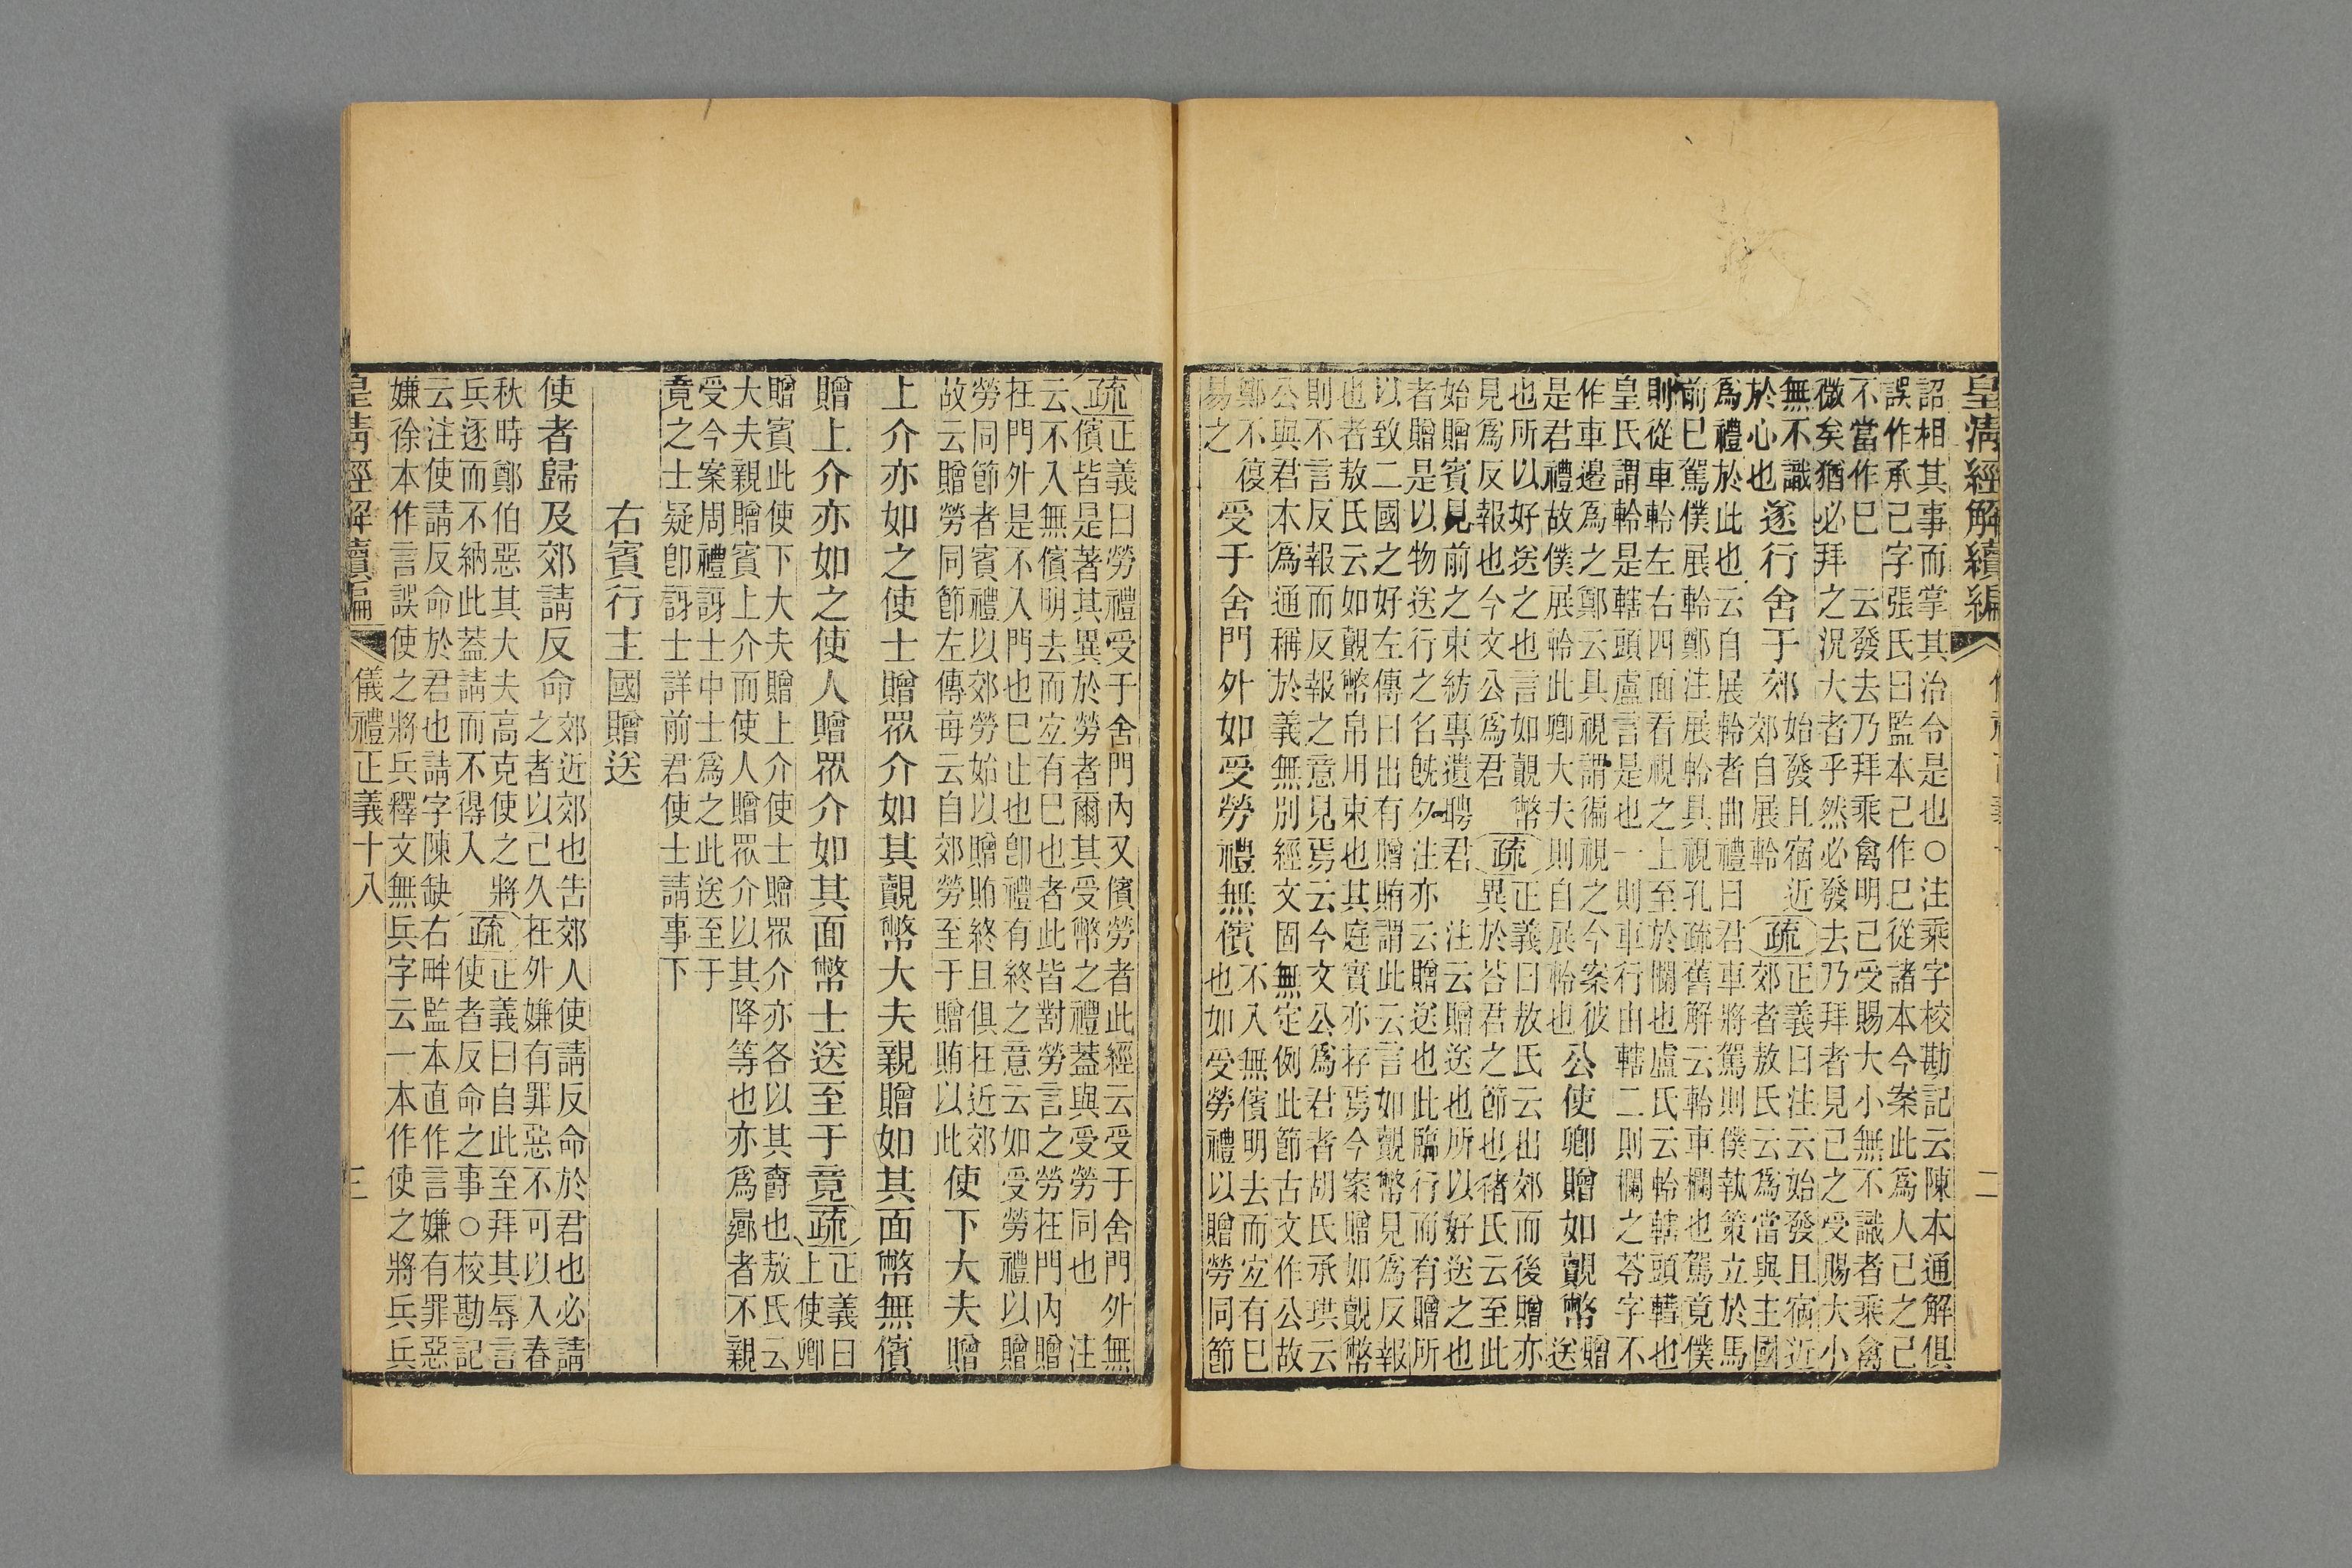 皇清經解續編
二
詔相其事而掌其治令是也○注乘字校勘記云陳本通解俱
誤作承己字張氏曰監本己作巳從諸本今案此爲人己之己
不當作巳 云發去乃拜乘禽明己受賜大小無不識者乘禽
微矣猶必拜之況大者乎然必發去乃拜者見已之受賜大小
無不識
於心也
遂行舍于郊
始發且宿近
郊自展軨
疏
正義曰注云始發且宿近
郊者敖氏云爲當與主國
爲禮於此也云自展軨者曲禮曰君車將駕則僕執策立於馬
前已駕僕展軨鄭注展軨具視孔疏舊解云軨車欄也駕竟僕
則從車軨左右四面看視之上至於欄也盧氏云軨轄頭轊也
皇氏謂軨是轄頭盧言是也一則車行由轄二則欄之苓字不
作車邊爲之鄭云具視謂徧視之今案彼
是君禮故僕展軨此卿大夫則自展軨也
公使卿贈如覿幣
贈
送
也所以好送之也言如覿幣
見爲反報也今文公爲君
疏
正義曰敖氏云出郊而後贈亦
異於荅君之節也褚氏云至此
始贈賓見前之東紡專遺聘君 注云贈送也所以好送之也
者贈是以物送行之名旣夕注亦云贈送也此臨行而有贈所
以致二國之好左傳曰出有贈賄謂此云言如覿幣見爲反報
也者敖氏云如覿幣帛用束也其庭實亦存焉今案贈如覿幣
則不言反報而反報之意見焉云今文公爲君者胡氏承珙云
公與君本爲通稱於義無別經文固無定例此節古文作公故
鄭不復
易之
受于舍門外如受勞禮無儐
不入無儐明去而宐有已
也如受勞禮以贈勞同節
疏
正義曰勞禮受于舍門內又儐勞者此經云受于舍門外無
儐皆是著其異於勞者爾其受幣之禮蓋與受勞同也 注
云不入無儐明去而宐有巳也者此皆對勞言之勞在門內贈
在門外是不入門也巳止也卽禮有終之意云如受勞禮以贈
勞同節者賓禮以郊勞始以贈賄終且俱在近郊
故云贈勞同節左傳每云自郊勞至于贈賄以此
使下大夫贈
上介亦如之使士贈眾介如其覿幣大夫親贈如其面幣無儐
贈上介亦如之使人贈眾介如其面幣士送至于竟
疏
正義曰
上使卿
贈賓此使下大夫贈上介使士贈眾介亦各以其爵也敖氏云
大夫親贈賓上介而使人贈眾介以其降等也亦爲曏者不親
受今案周禮訝士中士爲之此送至于
竟之士疑卽訝士詳前君使士請事下
右賓行主國贈送
使者歸及郊請反命
郊近郊也告郊人使請反命於君也必請
之者以己久在外嫌有罪惡不可以入春
秋時鄭伯惡其大夫高克使之將
兵逐而不納此蓋請而不得入
疏
正義曰自此至拜其辱言
使者反命之事○校勘記
云注使請反命於君也請字陳缺右畔監本直作言嫌有罪惡
嫌徐本作言誤使之將兵釋文無兵字云一本作使之將兵兵
皇清經解續編
儀禮正義十八
三